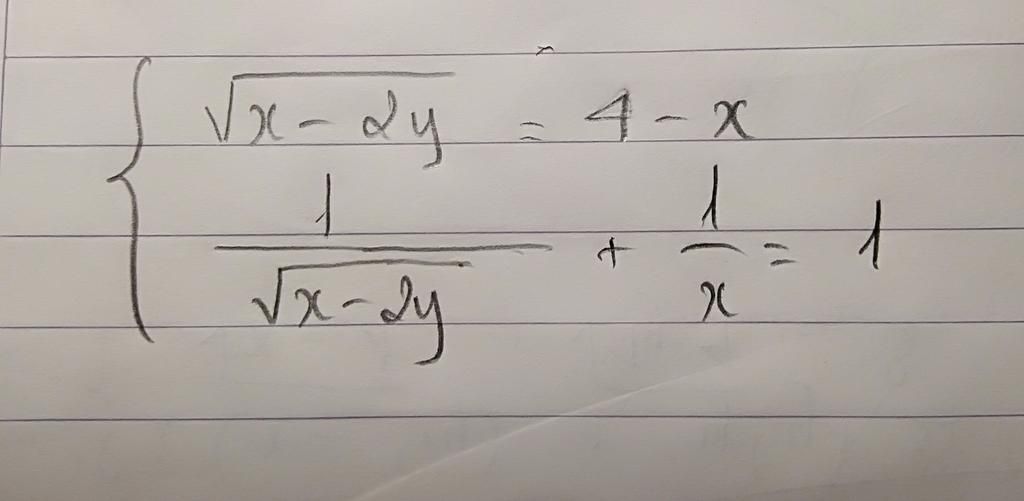 √(x - 2y) = 4 - x
1/√(x - 2y) + 1/x = 1